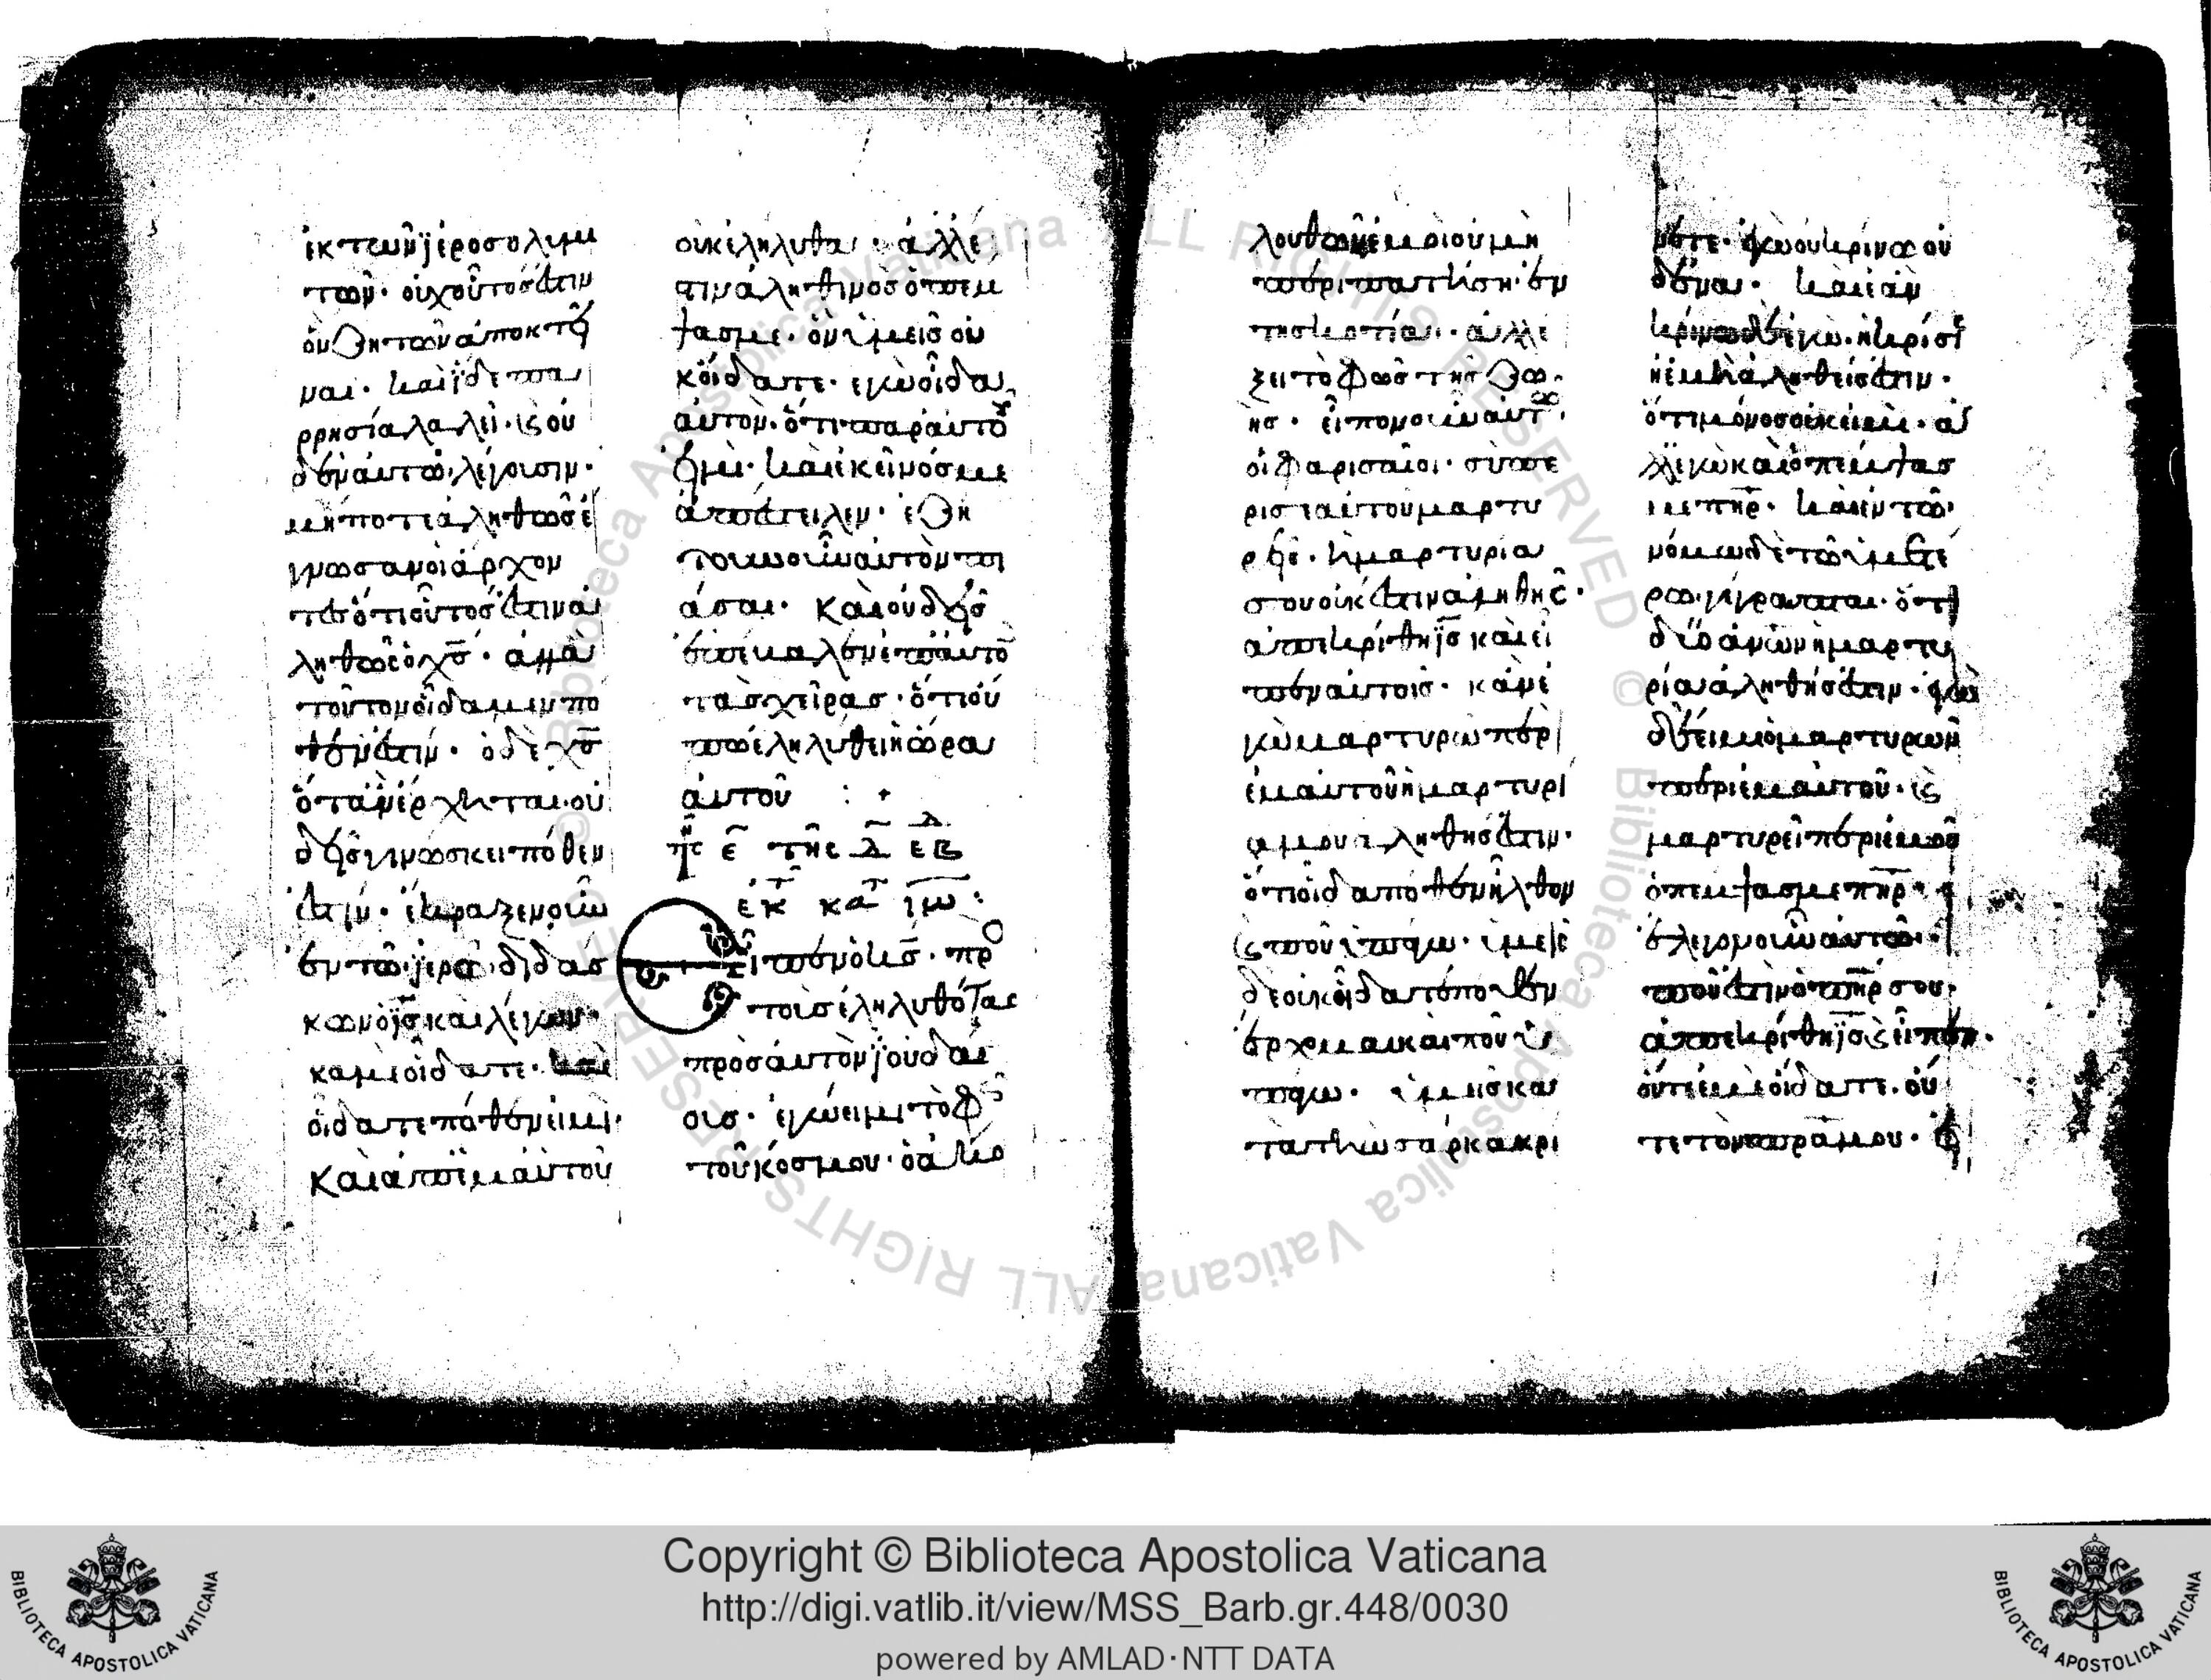 ἐκ τῶν ϊεροσολυμι
τῶν· οὐχ οὗτός ἐστιν
ὃν ζητοῦν ἀποκτεῖ
ναι· καὶ ἴδε πα
ρρησία λαλεῖ· ϗ οὐ
δὲν αὐτῶ λέγουσιν·
μήποτε ἀληθῶς ἔ
γνωσαν οἱ ἄρχον
τες ὅτι οὗτός ἐστιν ἀ
ληθῶς ὁ χς· ἀλλὰ
τοῦτον οἴδαμεν πό
θεν ἐστίν· ὁ δὲ χς
ὅταν ἔρχηται οὐ
δεὶς γινώσκει πόθεν
ἐστίν· ἔκραξεν οὖν
ἐν τῶ ϊερῶ διδάσ
κων ὁ ϊς καὶ λέγων·
κἀμὲ οἴδατε· καὶ
οἴδατε πόθεν εἰμί·
καὶ ἀπ' ἐμαυτοῦ
οὐκ ἐλήλυθα· ἀλλ' ἔ
στιν ἀληθινὸς ὁ πέμ
ψας με· ὃν ὑμεῖς οὐ
κ οἴδατε· ἐγὼ οἶδα
αὐτὸν· ὅτι παρ' αὐτοῦ
εἰμι· καὶ ἐκεῖνός με
ἀπέστειλεν· ἐζή
τουν οὖν αὐτὸν πι
άσαι· καὶ οὐδεὶς
ἐπέβαλεν ἐπ' αὐτὸ
τὰς χεῖρας· ὅτι οὔ
πω ἐληλύθει ἡ ὥρα
αὐτοῦ :+
τῆς ε τῆς δ ἑβδ
ἐκ κατ ιω:
Εἶπεν ὁ κς· πρὸ
τοὺς ἐληλυθότας
πρὸς αὐτὸν ϊουδαί
ους· ἐγώ εἰμι τὸ φῶς
τοῦ κόσμου· ὁ ἀκο
λουθῶν ἐμοὶ οὐ μὴ
περιπατήση ἐν
τῆ σκοτία· ἀλλ' ἕ
ξει τὸ φῶς τῆς ζω
ῆς· εἶπον οὖν αὐτῶ
οἱ φαρισαῖοι· σὺ πε
ρὶ σεαυτοῦ μαρτυ
ρεῖς· ἡ μαρτυρία
σου οὐκ ἔστιν ἀληθής·
ἀπεκρίθη ϊς καὶ εἶ
πεν αὐτοῖς· κἂν ἐ
γὼ μαρτυρῶ περὶ
ἐμαυτοῦ ἡ μαρτυρί
α μου ἀληθής ἐστιν·
ὅτι οἶδα πόθεν ἦλθον
ϗ ποῦ ὑπάγω· ὑμεῖς
δὲ οὐκ οἴδατε πόθεν
ἔρχομαι καὶ ποῦ ὑ
πάγω· ὑμεῖς κα
τὰ τὴν σάρκα κρί
νετε· ἐγὼ οὐ κρίνω οὐ
δένα· καὶ ἐὰν
κρίνω δὲ ἐγώ· ἡ κρίσις
ἡ ἐμὴ ἀληθής ἐστιν·
ὅτι μόνος οὐκ εἰμί· ἀλ
λ' ἐγὼ καὶ ὁ πέμψας
με πηρ· καὶ ἐν τῶ
νόμω δὲ τῶ ὑμετέ
ρω γέγραπται· ὅτι
δύο ἀνων ἡ μαρτυ
ρία ἀληθής ἐστιν· ἐγὼ
εἰμι ὁ μαρτυρῶν
περὶ ἐμαυτοῦ· ϗ
μαρτυρεῖ περὶ ἐμοῦ
ὁ πέμψας με πηρ·
ἔλεγον οὖν αὐτῶ·
ποῦ ἐστιν ὁ πηρ σου·
ἀπεκρίθη ϊς ϗ εἶπεν·
οὔτε ἐμὲ οἴδατε· οὔ
τε τὸν πρα μου· εἰ
Copyright © Biblioteca Apostolica Vaticana
http://digi.vatlib.it/view/MSS_Barb.gr.448/0030
powered by AMLAD·NTT DATA
BIBLIOTECA APOSTOLICA VATICANA
BIBLIOTECA APOSTOLICA VATICANA